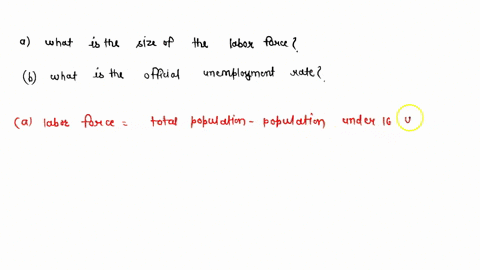 a) what is the size of the labor force?
(b) what is the official unemployment rate?
(a) labor force = total population - population under 16